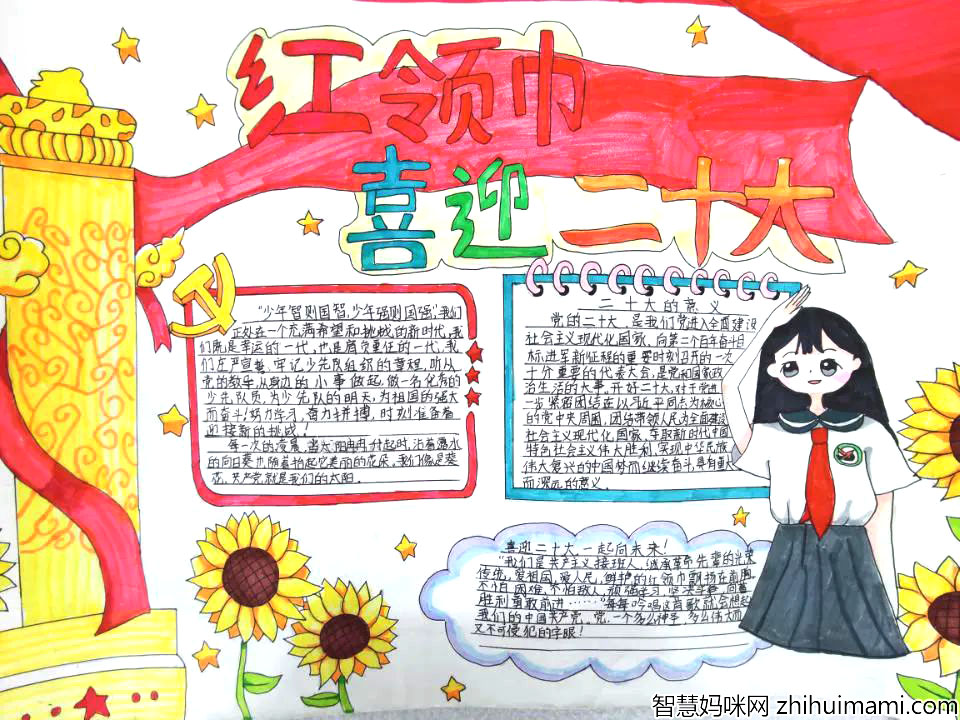 红领巾
喜迎二十大
"少年智则国智,少年强则国强",我们
正处在一个充满希望和挑战的新时代,我
们既是幸运的一代,也是肩负重任的一代,我
们庄严宣誓,牢记少先队组织的章程,听从
党的教导,从身边的小事做起,做一名优秀的
少先队员,为少先队的明天,为祖国的强大
而奋斗!努力学习,奋力拼搏,时刻准备着
迎接新的挑战!
每一次的凌晨,当太阳冉冉升起时,沾着露水
的向日葵也随着抬起它美丽的花朵,我们像是葵
花,共产党就是我们的太阳.
二十大的意义
党的二十大,是我们党进入全面建设
社会主义现代化国家、向第二个百年奋斗目
标,进军新征程的重要时刻召开的一次
十分重要的代表大会,是党和国家政
治生活的大事,开好二十大,对于党进
一步紧密团结在以习近平同志为核心
的党中央周围,团结带领人民为全面建设
社会主义现代化国家,夺取新时代中国
特色社会主义伟大胜利,实现中华民族
伟大复兴的中国梦而继续奋斗具有重大
而深远的意义.
喜迎二十大,一起向未来!
"我们是共产主义接班人,继承革命先辈的光荣
传统,爱祖国,爱人民,鲜艳的红领巾飘扬在前胸
不怕困难,不怕敌人,顽强学习,坚决斗争,向着
胜利勇敢前进……"每每吟唱这首歌就会想起
我们的中国共产党,党,一个多么神圣,多么伟大而
又不可侵犯的字眼!
智慧妈咪网 zhihuimami.com